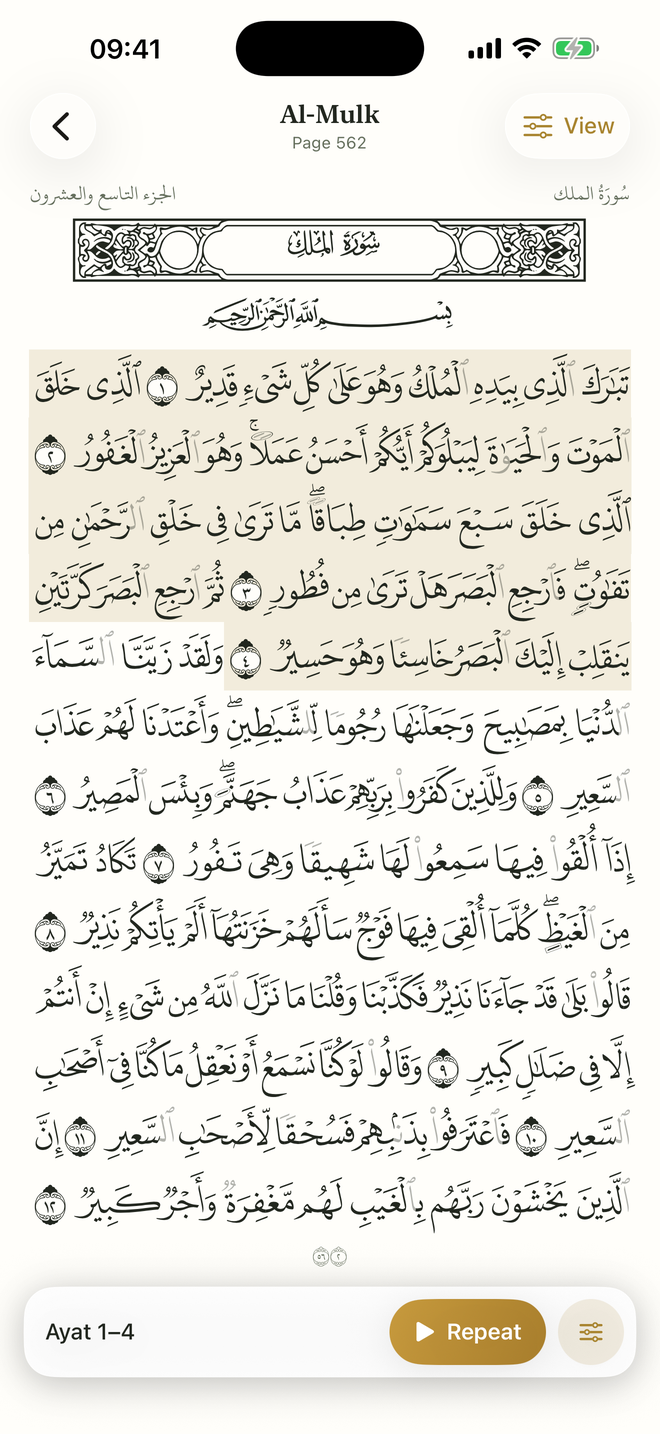 09:41
Al-Mulk
Page 562
View
سُورَةُ الملك
الجزء التاسع والعشرون
سُورَةُ المُلكِ
بِسْمِ ٱللَّهِ ٱلرَّحْمَٰنِ ٱلرَّحِيمِ
تَبَٰرَكَ ٱلَّذِى بِيَدِهِ ٱلْمُلْكُ وَهُوَ عَلَىٰ كُلِّ شَىْءٍ قَدِيرٌ ١ ٱلَّذِى خَلَقَ
ٱلْمَوْتَ وَٱلْحَيَوٰةَ لِيَبْلُوَكُمْ أَيُّكُمْ أَحْسَنُ عَمَلًا ۚ وَهُوَ ٱلْعَزِيزُ ٱلْغَفُورُ ٢
ٱلَّذِى خَلَقَ سَبْعَ سَمَٰوَٰتٍ طِبَاقًا ۖ مَّا تَرَىٰ فِى خَلْقِ ٱلرَّحْمَٰنِ مِن
تَفَٰوُتٍ ۖ فَٱرْجِعِ ٱلْبَصَرَ هَلْ تَرَىٰ مِن فُطُورٍ ٣ ثُمَّ ٱرْجِعِ ٱلْبَصَرَ كَرَّتَيْنِ
يَنقَلِبْ إِلَيْكَ ٱلْبَصَرُ خَاسِئًا وَهُوَ حَسِيرٌ ٤ وَلَقَدْ زَيَّنَّا ٱلسَّمَآءَ
ٱلدُّنْيَا بِمَصَٰبِيحَ وَجَعَلْنَٰهَا رُجُومًا لِّلشَّيَٰطِينِ ۖ وَأَعْتَدْنَا لَهُمْ عَذَابَ
ٱلسَّعِيرِ ٥ وَلِلَّذِينَ كَفَرُوا۟ بِرَبِّهِمْ عَذَابُ جَهَنَّمَ ۖ وَبِئْسَ ٱلْمَصِيرُ ٦
إِذَآ أُلْقُوا۟ فِيهَا سَمِعُوا۟ لَهَا شَهِيقًا وَهِىَ تَفُورُ ٧ تَكَادُ تَمَيَّزُ
مِنَ ٱلْغَيْظِ ۖ كُلَّمَآ أُلْقِىَ فِيهَا فَوْجٌ سَأَلَهُمْ خَزَنَتُهَآ أَلَمْ يَأْتِكُمْ نَذِيرٌ ٨
قَالُوا۟ بَلَىٰ قَدْ جَآءَنَا نَذِيرٌ فَكَذَّبْنَا وَقُلْنَا مَا نَزَّلَ ٱللَّهُ مِن شَىْءٍ إِنْ أَنتُمْ
إِلَّا فِى ضَلَٰلٍ كَبِيرٍ ٩ وَقَالُوا۟ لَوْ كُنَّا نَسْمَعُ أَوْ نَعْقِلُ مَا كُنَّا فِىٓ أَصْحَٰبِ
ٱلسَّعِيرِ ١٠ فَٱعْتَرَفُوا۟ بِذَنۢبِهِمْ فَسُحْقًا لِّأَصْحَٰبِ ٱلسَّعِيرِ ١١ إِنَّ
ٱلَّذِينَ يَخْشَوْنَ رَبَّهُم بِٱلْغَيْبِ لَهُم مَّغْفِرَةٌ وَأَجْرٌ كَبِيرٌ ١٢
٢ ٥٦
Ayat 1–4
Repeat